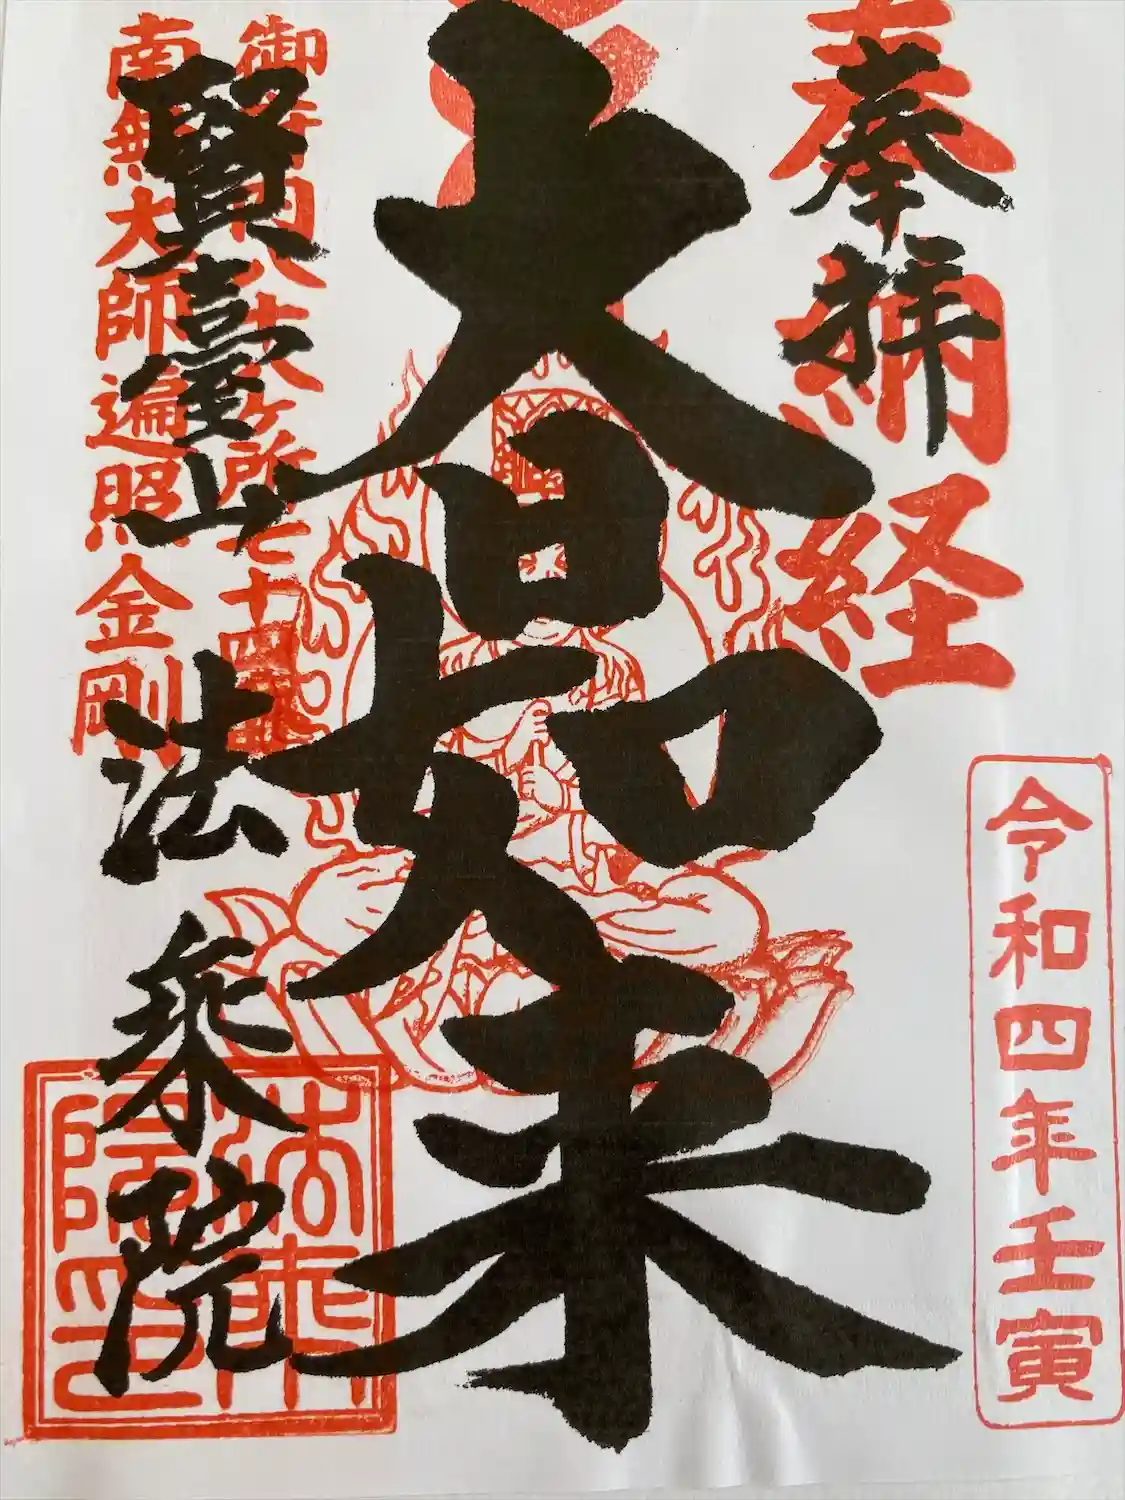 奉拝
奉納経
令和四年壬寅
大日如来
御府内八十八ヶ所七十四番
南無大師遍照金剛
賢臺山
法乗院
法乗院印